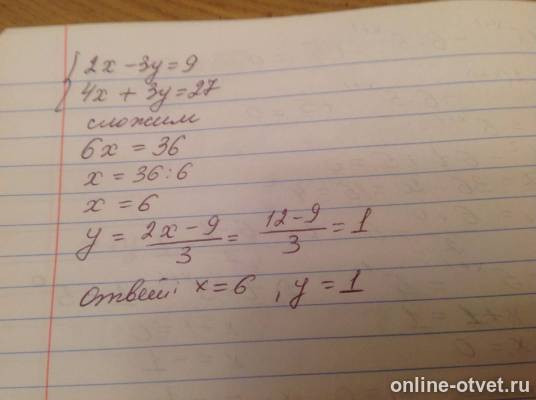 2x - 3y = 9
4x + 3y = 27
сложим
6x = 36
x = 36 : 6
x = 6
y = 2x - 9 / 3 = 12 - 9 / 3 = 1
ответ: x = 6, y = 1
online-otvet.ru